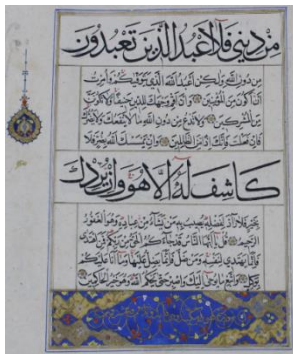 مِن دِينِي فَلَا أَعْبُدُ الَّذِينَ تَعْبُدُونَ
مِن دُونِ اللَّهِ وَلَٰكِنْ أَعْبُدُ اللَّهَ الَّذِي يَتَوَفَّيكُمْ وَأُمِرْتُ
أَنْ أَكُونَ مِنَ الْمُؤْمِنِينَ وَأَنْ أَقِمْ وَجْهَكَ لِلدِّينِ حَنِيفًا وَلَا تَكُونَنَّ
مِنَ الْمُشْرِكِينَ وَلَا تَدْعُ مِن دُونِ اللَّهِ مَا لَا يَنفَعُكَ وَلَا يَضُرُّكَ
فَإِن فَعَلْتَ فَإِنَّكَ إِذًا مِنَ الظَّالِمِينَ وَإِن يَمْسَسْكَ اللَّهُ بِضُرٍّ فَلَا
كَاشِفَ لَهُ إِلَّا هُوَ وَإِن يُرِدْكَ
بِخَيْرٍ فَلَا رَادَّ لِفَضْلِهِ يُصِيبُ بِهِ مَن يَشَاءُ مِنْ عِبَادِهِ وَهُوَ الْغَفُورُ
الرَّحِيمُ قُلْ يَا أَيُّهَا النَّاسُ قَدْ جَاءَكُمُ الْحَقُّ مِن رَبِّكُمْ فَمَنِ اهْتَدَى
فَإِنَّمَا يَهْتَدِي لِنَفْسِهِ وَمَن ضَلَّ فَإِنَّمَا يَضِلُّ عَلَيْهَا وَمَا أَنَا عَلَيْكُم
بِوَكِيلٍ وَاتَّبِعْ مَا يُوحَى إِلَيْكَ وَاصْبِرْ حَتَّى يَحْكُمَ اللَّهُ وَهُوَ خَيْرُ الْحَاكِمِينَ